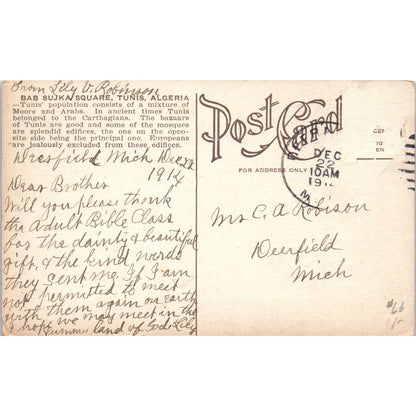 From Lily V. Robinson
BAB SUJKA SQUARE, TUNIS, ALGERIA
—Tunis' population consists of a mixture of
Moors and Arabs. In ancient times Tunis
belonged to the Carthagians. The bazaars
of Tunis are good and some of the mosques
are splendid edifices, the one on the oppo-
site side being the principal one. Europeans
are jealously excluded from these edifices.
Deerfield Mich Dec 22
1914
Dear Brother
Will you please thank
the Adult Bible Class
for the dainty & beautiful
gift, & the kind words
they sent me. If I am
not permitted to meet
with them again on earth
I hope we may meet in the
Summer land of God. Lily
Post Card
FOR ADDRESS ONLY
DEC
22
10 AM
191
M
Mr C. A Robison
Deerfield
Mich